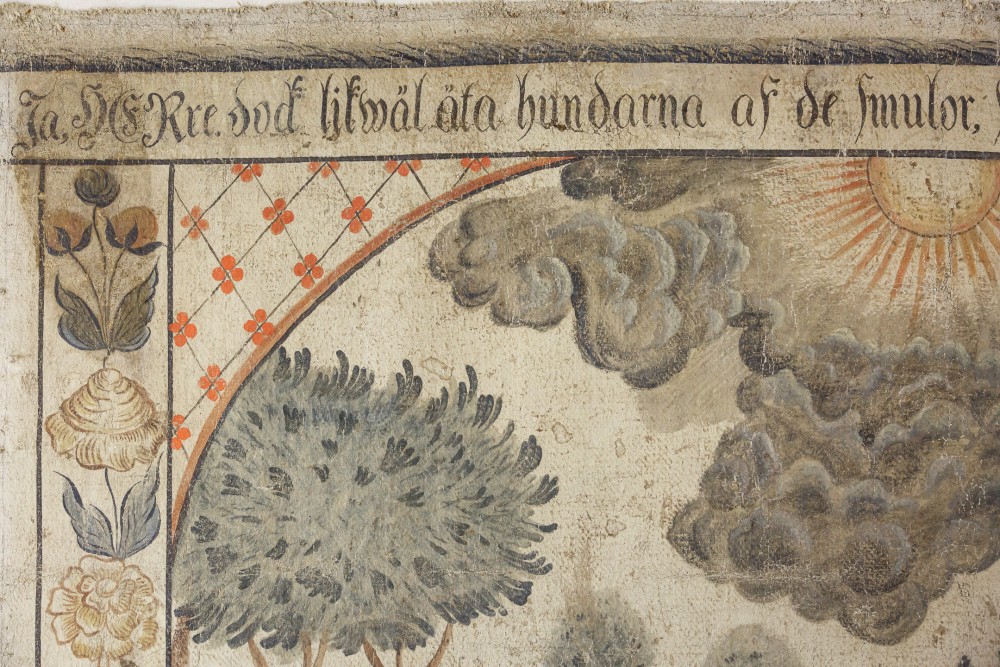 Ja, HERre. dock ljkwäl äta hundarna af de smulor,